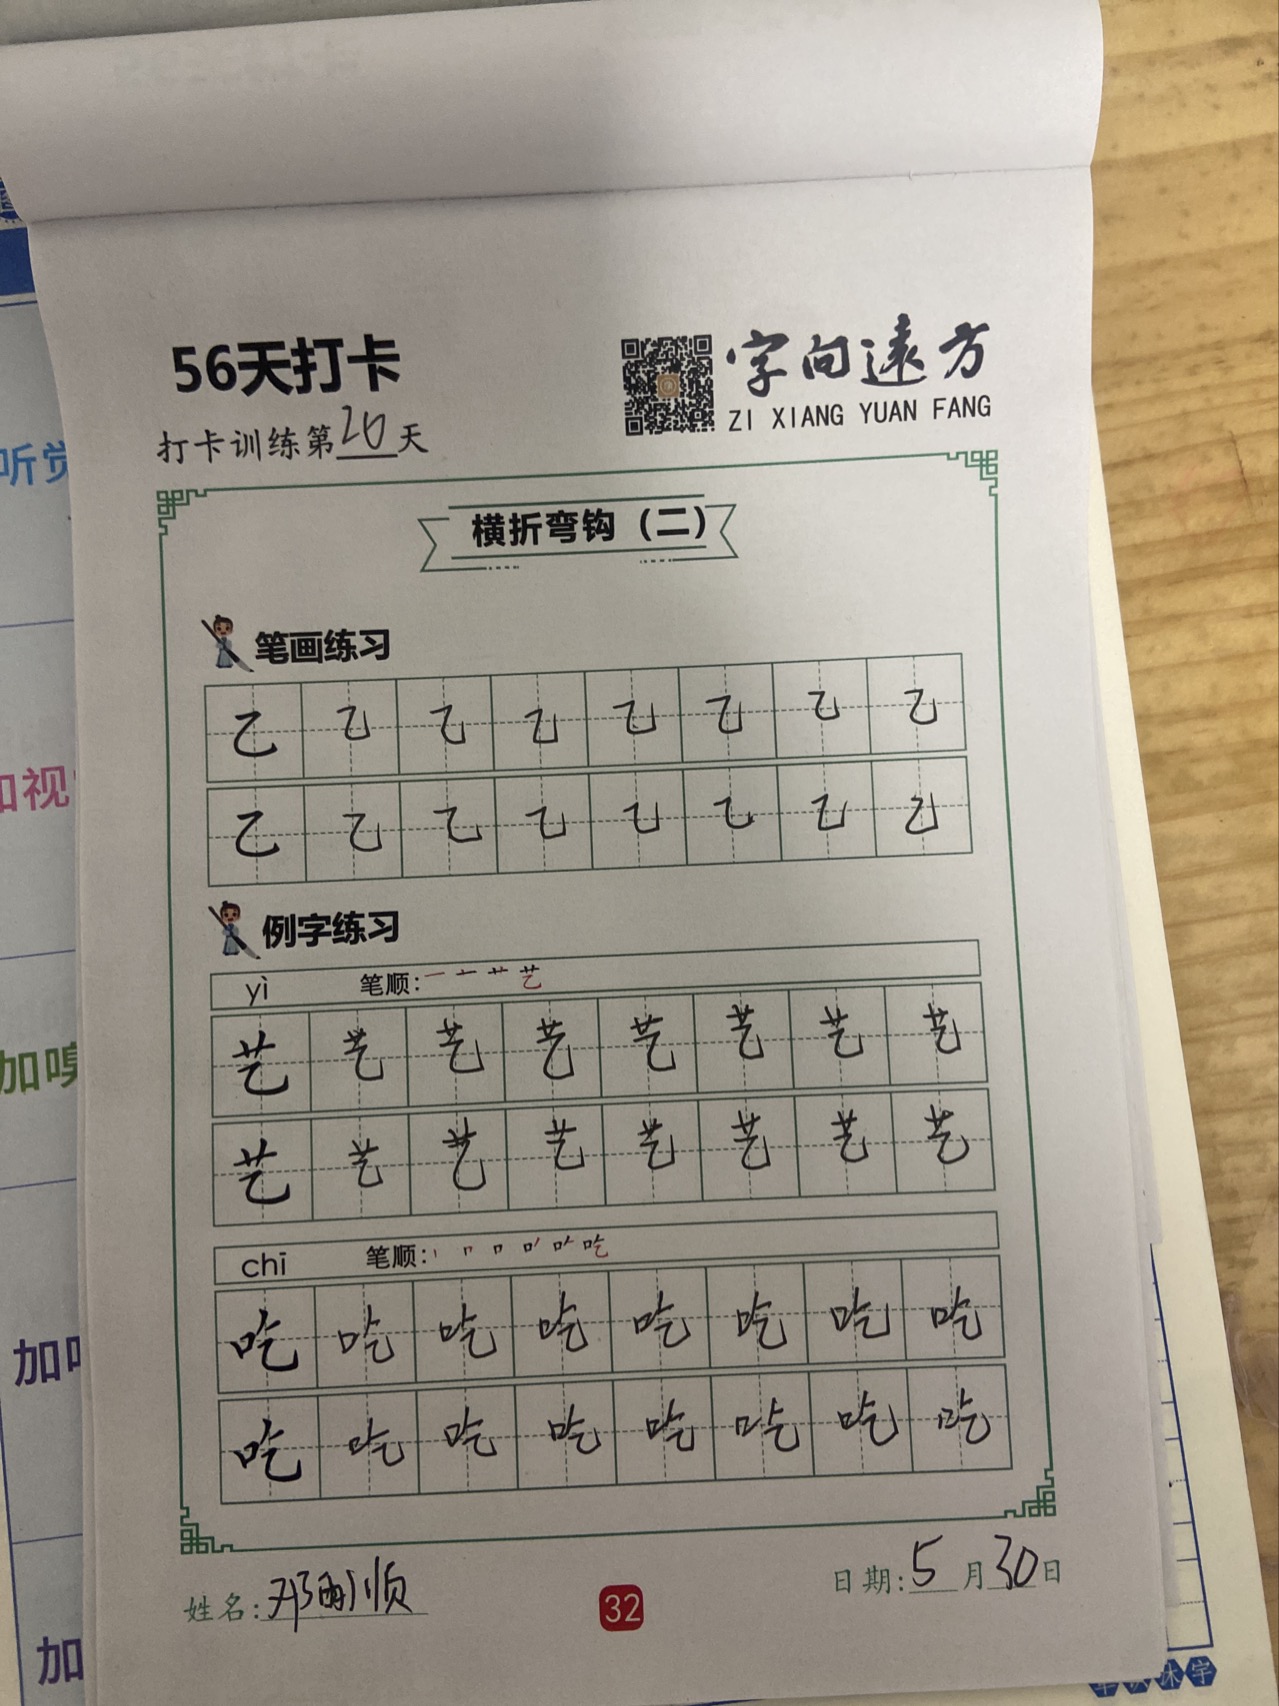 56天打卡
字向遠方
ZI XIANG YUAN FANG
打卡训练第26天
横折弯钩（二）
笔画练习
乙 乙 乙 乙 乙 乙 乙 乙
乙 乙 乙 乙 乙 乙 乙 乙
例字练习
yì 笔顺: 一 十 艹 艺
艺 艺 艺 艺 艺 艺 艺 艺
艺 艺 艺 艺 艺 艺 艺 艺
chī 笔顺: 丨 𠃍 口 口丿 口𠂉 吃
吃 吃 吃 吃 吃 吃 吃 吃
吃 吃 吃 吃 吃 吃 吃 吃
姓名: 邓 顺
32
日期: 5 月 30 日
听觉
加视
加嗅
加
加